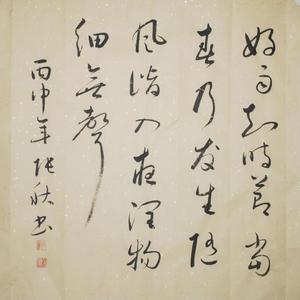 好雨知时节当
春乃发生随
风潜入夜润物
细无声
丙申年张秋书